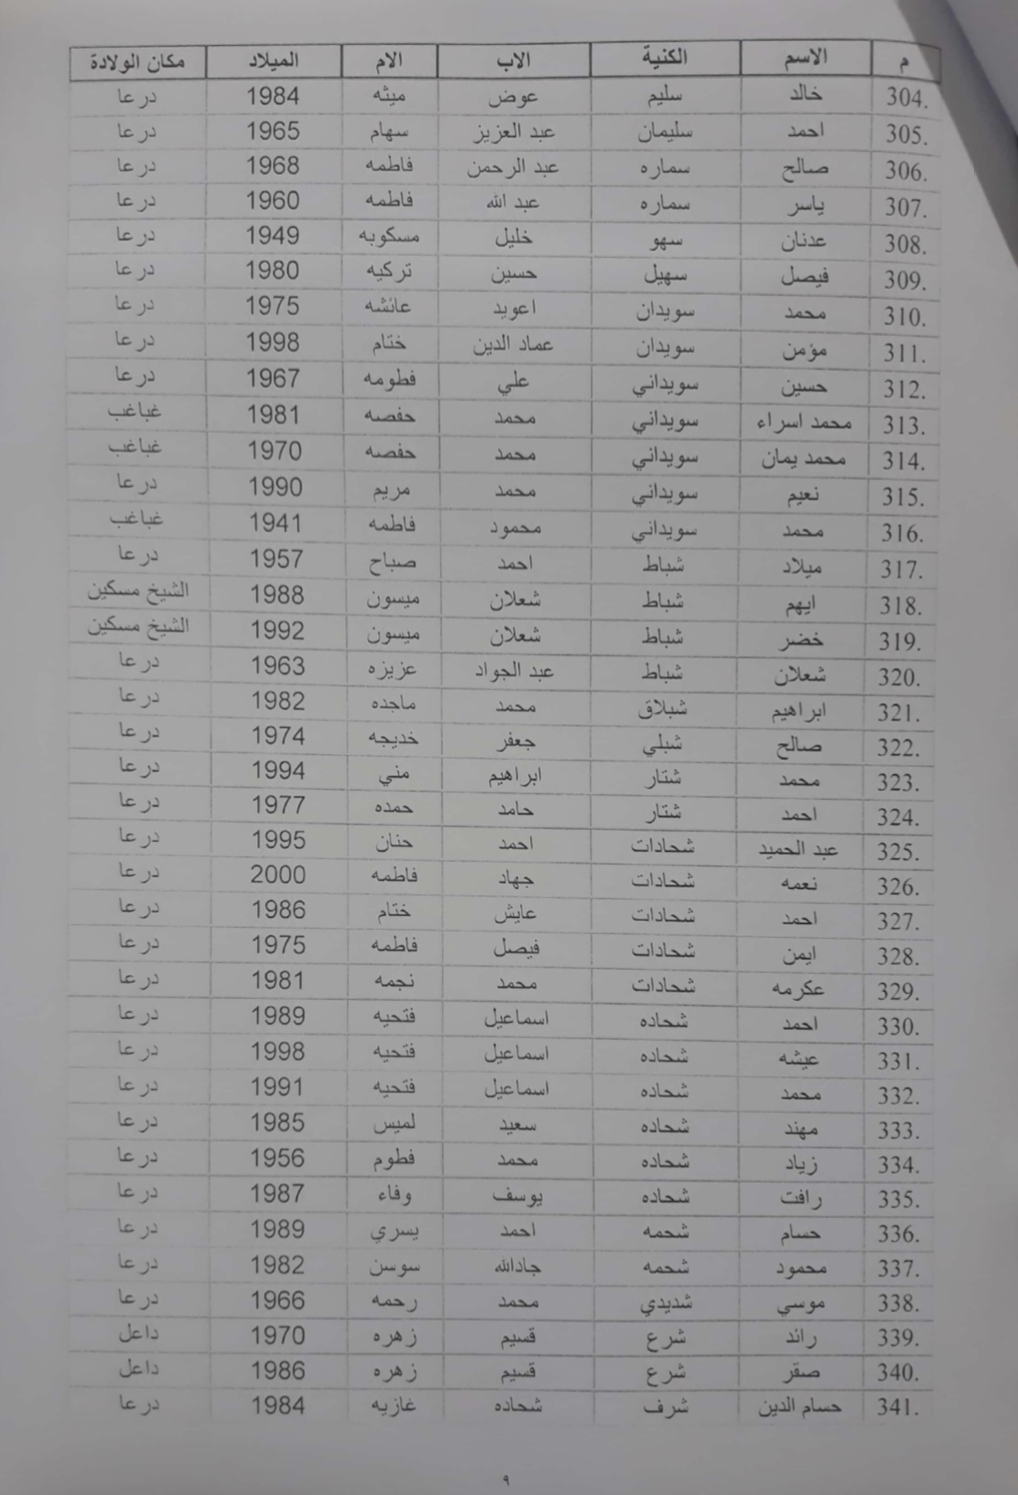 م الاسم الكنية الاب الام الميلاد مكان الولادة
304. خالد سليم عوض ميثه 1984 درعا
305. احمد سليمان عبد العزيز سهام 1965 درعا
306. صالح سماره عبد الرحمن فاطمه 1968 درعا
307. ياسر سماره عبد الله فاطمه 1960 درعا
308. عدنان سهو خليل مسكوبه 1949 درعا
309. فيصل سهيل حسين تركيه 1980 درعا
310. محمد سويدان اعويد عائشه 1975 درعا
311. مؤمن سويدان عماد الدين ختام 1998 درعا
312. حسين سويداني علي فطومه 1967 درعا
313. محمد اسراء سويداني محمد حفصه 1981 غباغب
314. محمد يمان سويداني محمد حفصه 1970 غباغب
315. نعيم سويداني محمد مريم 1990 درعا
316. محمد سويداني محمود فاطمه 1941 غباغب
317. ميلاد شباط احمد صباح 1957 درعا
318. ايهم شباط شعلان ميسون 1988 الشيخ مسكين
319. خضر شباط شعلان ميسون 1992 الشيخ مسكين
320. شعلان شباط عبد الجواد عزيزه 1963 درعا
321. ابراهيم شبلاق محمد ماجده 1982 درعا
322. صالح شبلي جعفر خديجه 1974 درعا
323. محمد شتار ابراهيم مني 1994 درعا
324. احمد شتار حامد حمده 1977 درعا
325. عبد الحميد شحادات احمد حنان 1995 درعا
326. نعمه شحادات جهاد فاطمه 2000 درعا
327. احمد شحادات عايش ختام 1986 درعا
328. ايمن شحادات فيصل فاطمه 1975 درعا
329. عكرمه شحادات محمد نجمه 1981 درعا
330. احمد شحاده اسماعيل فتحيه 1989 درعا
331. عيشه شحاده اسماعيل فتحيه 1998 درعا
332. محمد شحاده اسماعيل فتحيه 1991 درعا
333. مهند شحاده سعيد لميس 1985 درعا
334. زياد شحاده محمد فطوم 1956 درعا
335. رافت شحاده يوسف وفاء 1987 درعا
336. حسام شحمه احمد يسري 1989 درعا
337. محمود شحمه جادالله سوسن 1982 درعا
338. موسي شديدي محمد رحمه 1966 درعا
339. رائد شرع قسيم زهره 1970 داعل
340. صقر شرع قسيم زهره 1986 داعل
341. حسام الدين شرف شحاده غازيه 1984 درعا
٩